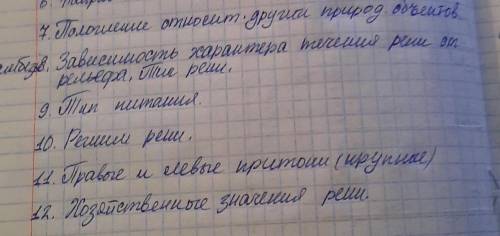 6.
7. Положение относит. другой природ объектов
8. Зависимость характера течения реки от
рельефа, Тип реки.
9. Тип питания.
10. Режим реки.
11. Правые и левые притоки (крупные)
12. Хозяйственные значения реки.